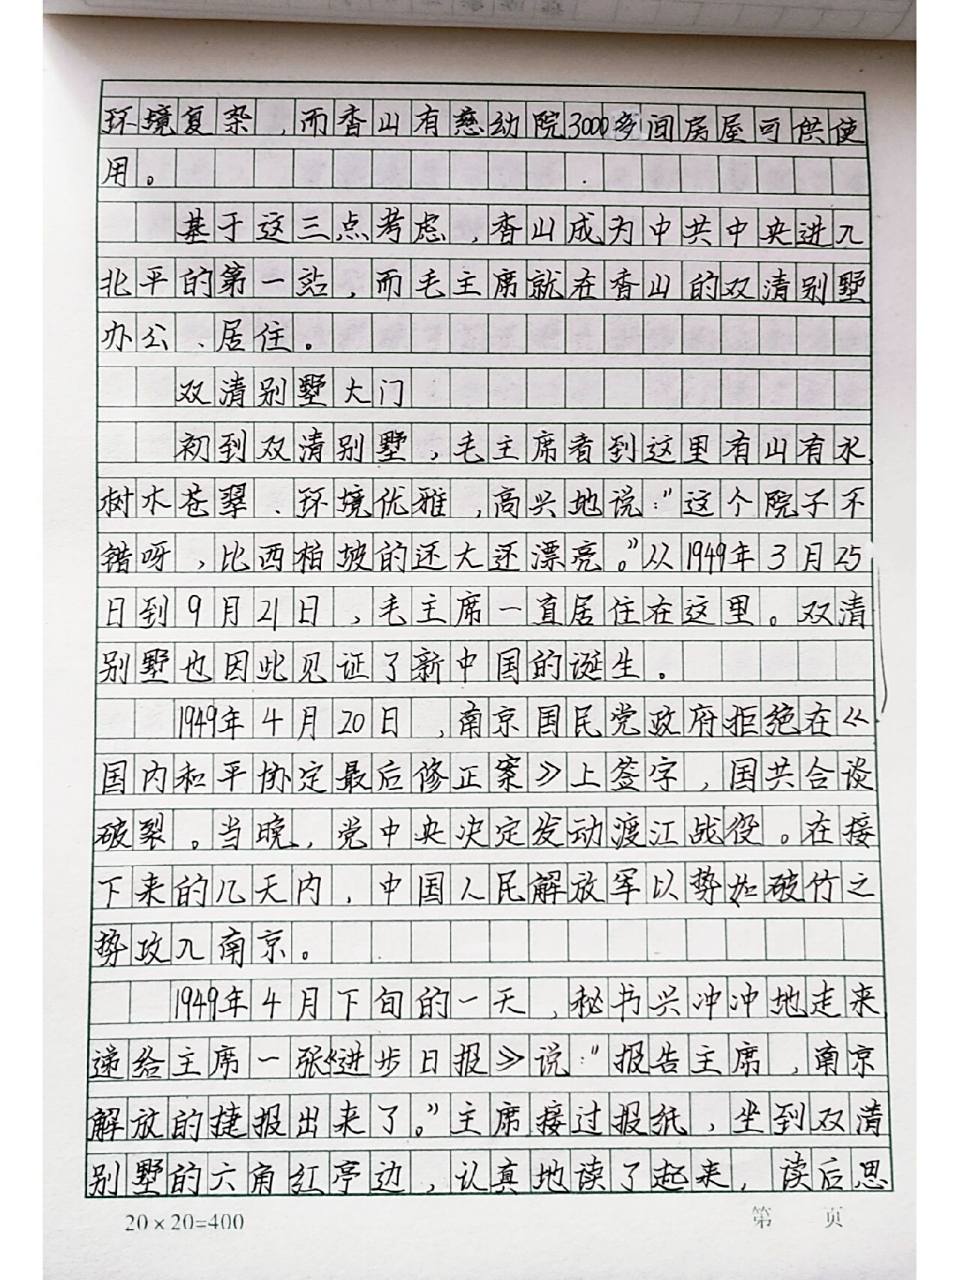 环境复杂，而香山有慈幼院3000多间房屋可供使
用。
基于这三点考虑，香山成为中共中央进入
北平的第一站，而毛主席就在香山的双清别墅
办公、居住。
双清别墅大门
初到双清别墅，毛主席看到这里有山有水
树木苍翠、环境优雅，高兴地说：“这个院子不
错呀，比西柏坡的还大还漂亮。”从1949年3月25
日到9月21日，毛主席一直居住在这里。双清
别墅也因此见证了新中国的诞生。
1949年4月20日，南京国民党政府拒绝在《
国内和平协定最后修正案》上签字，国共合谈
破裂。当晚，党中央决定发动渡江战役。在接
下来的几天内，中国人民解放军以势如破竹之
势攻入南京。
1949年4月下旬的一天，秘书兴冲冲地走来
递给主席一张《进步日报》说：“报告主席，南京
解放的捷报出来了。”主席接过报纸，坐到双清
别墅的六角红亭边，认真地读了起来，读后思
20×20=400
第 页